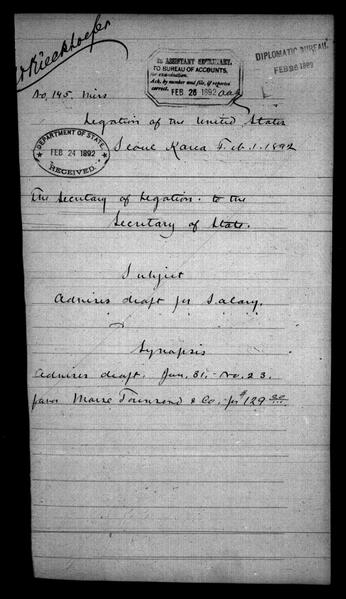 Kieckhoefer
2d ASSISTANT SECRETARY,
TO BUREAU OF ACCOUNTS,
for examination.
Ask, by number and file, if reported
correct.
FEB 26 1892
DIPLOMATIC BUREAU.
FEB 26 1892
No, 145. Misc
Legation of the United States
Seoul Korea Feb. 1. 1892
DEPARTMENT OF STATE,
FEB 24 1892
RECEIVED.
The Secretary of Legation. to the
Secretary of State.
Subject
Advises draft for Salary.
Synopsis
Advises draft. Jan. 31. - No. 23.
favor Townsend & Co. - for $129